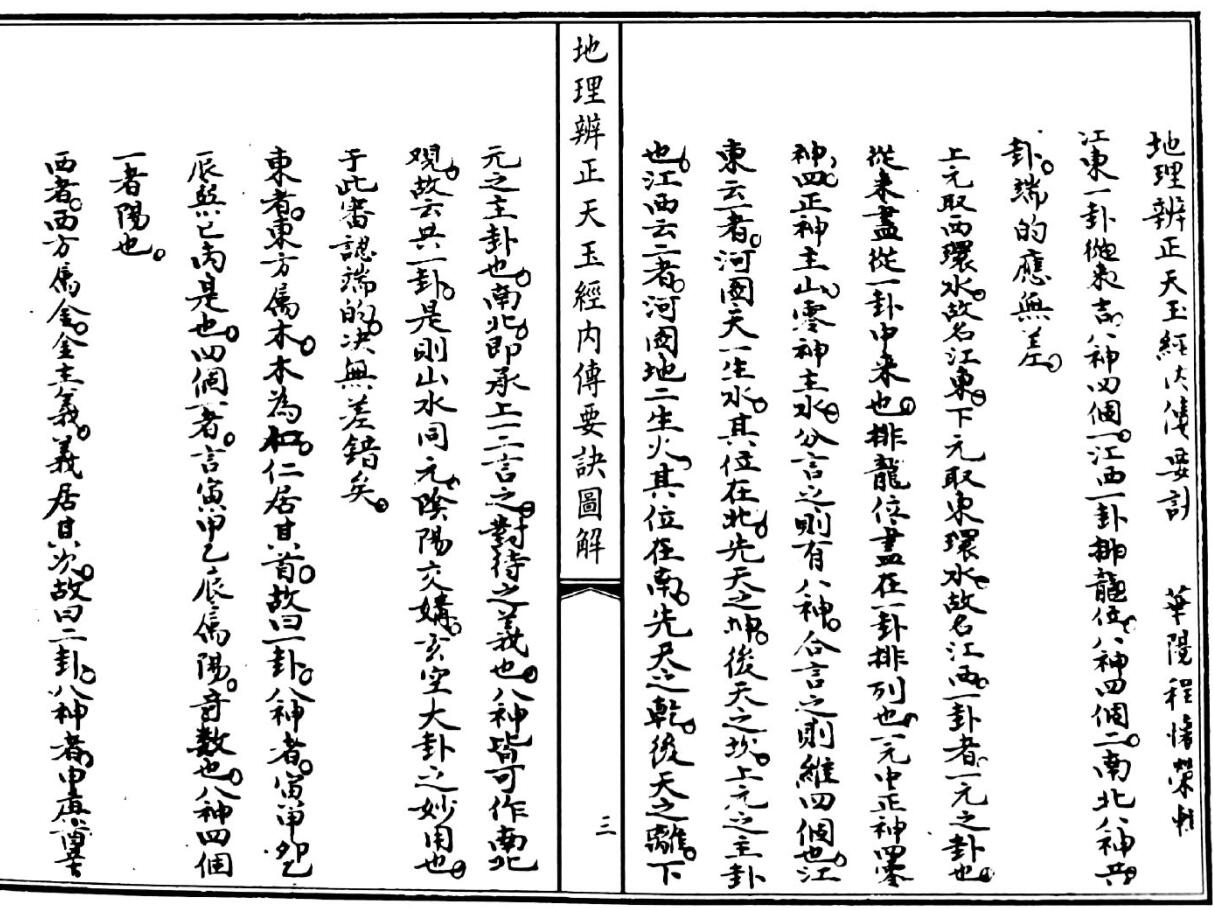 地理辨正天玉經內傳要訣 華陽程懷榮
江東一卦從來吉八神四個一江西一卦排龍位八神四個二南北八神共一
卦端的應無差
上元取西環水故名江東下元取東環水故名江西一卦者一元之卦也
從來盡從一卦中來也排龍位盡在一卦排列也一元中正神四零
神四正神主山零神主水分言之則有八神合言之則維四個也江
東云一者河圖天一生水其位在北先天之坤後天之坎上元之主卦
也江西云二者河圖地二生火其位在南先天之乾後天之離下
地理辨正天玉經內傳要訣圖解
三
元之主卦也南北即承上一二言之對待之義也八神皆可作南北
觀故云共一卦是則山水同元陰陽交媾玄空大卦之妙用也
于此審認端的決無差錯矣
東者東方屬木木為仁仁居其首故曰一卦八神者寅甲卯乙
辰巽巳丙是也四個者言寅甲乙辰屬陽奇數也八神四個
一者陽也
西者西方屬金金主義義居其次故曰二卦八神者申庚